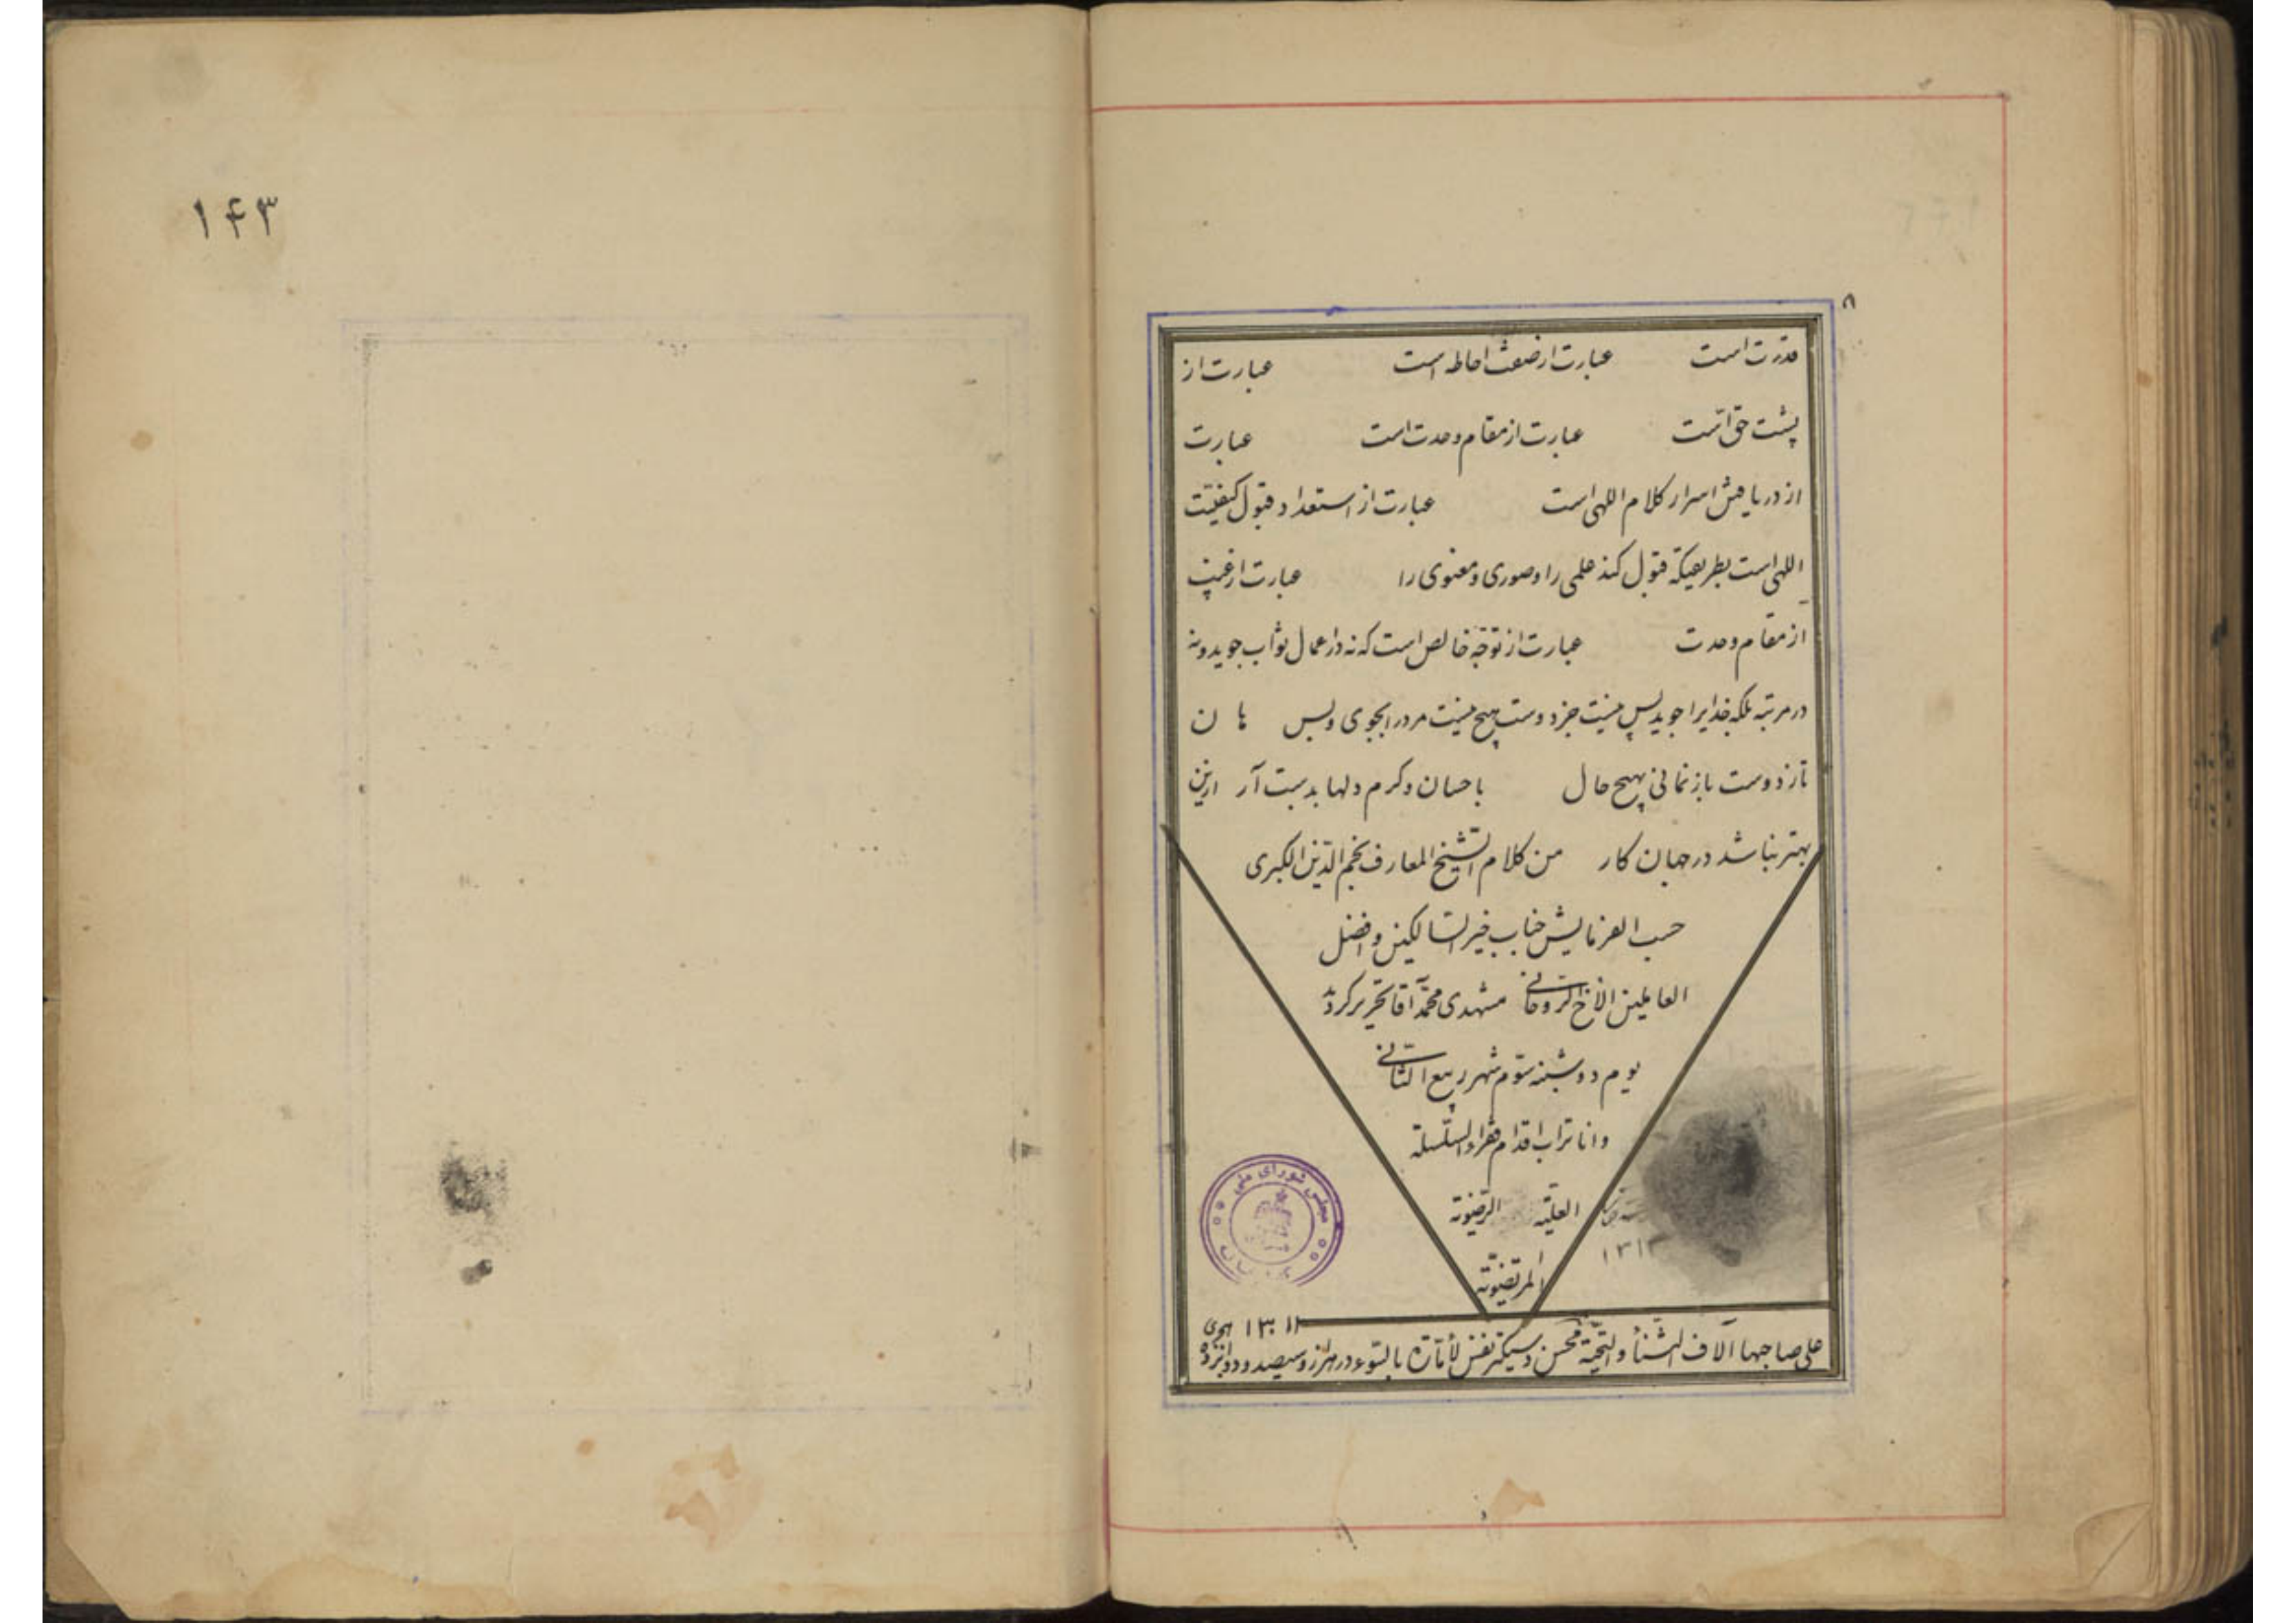 ۸
قدرت است عبارت از صفت احاطه است عبارت از
پشت حق است عبارت از مقام وحدت است عبارت
از دریافتن اسرار کلام اللهی است عبارت از استعداد قبول کیفیت
اللهی است بطریقیکه قبول کند علمی را و صوری و معنوی را عبارت از غیب
از مقام وحدت عبارت از توجه خالص است که نه در اعمال ثواب جوید و نه
در مرتبه بلکه خدایرا جوید پس نیست جز دوست هیچ نیست مردرا بجوی و بس هان
تا ز دوست باز نمانی بهیچ حال باحسان و کرم دلها بدست آر ازین
بهتر نباشد در جهان کار من کلام الشیخ المعارف نجم الدین الکبری
حسب الفرمایش جناب خیر السالکین و افضل
العاملین الاخ الروحانی مشهدی محمد آقا تحریر کردید
یوم دوشنبه سوم شهر ربیع الثانی
و انا تراب اقدام فقراء السلسلة
العلیّة الرضویّة
المرتضویّة
۱۳۱۲
علی صاحبها آلاف الثناء و التحیة محسن دستگیر نفس لأمّارة بالسوء در هزار و سیصد و دوازده
هجری
مجلس شورای ملی
۱۴۳